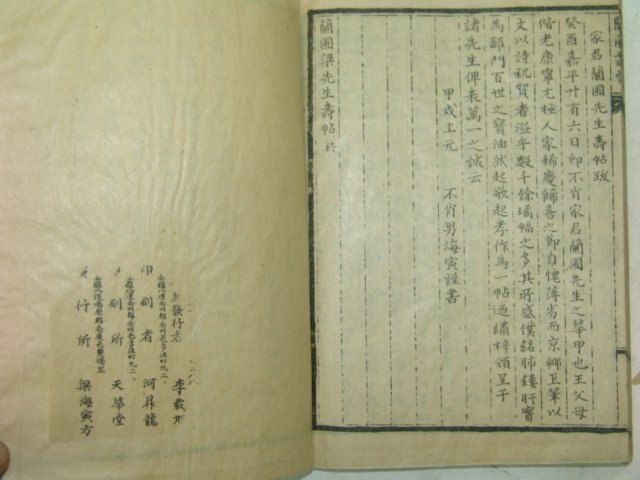 家君蘭圃先生壽帖跋
癸酉嘉平廿有六日卽不肖家君蘭圃先生之華甲也王父母
偕老康寧尤極人家稀慶歸喜之卽自愧薄劣而京鄕工筆以
文以詩祝賀者溢乎數千餘璚幅之多其所感僕銘肺鏤肝實
為鄙門百世之寶油然起敬起孝作為一帖迺繡梓頒呈于
諸先生俾表萬一之誠云
甲戌上元 不肖男海寅謹書
蘭圃梁先生壽帖終
發行者 李載
印刷者 河昇龍
刷所 天華堂
行所 梁海寅方